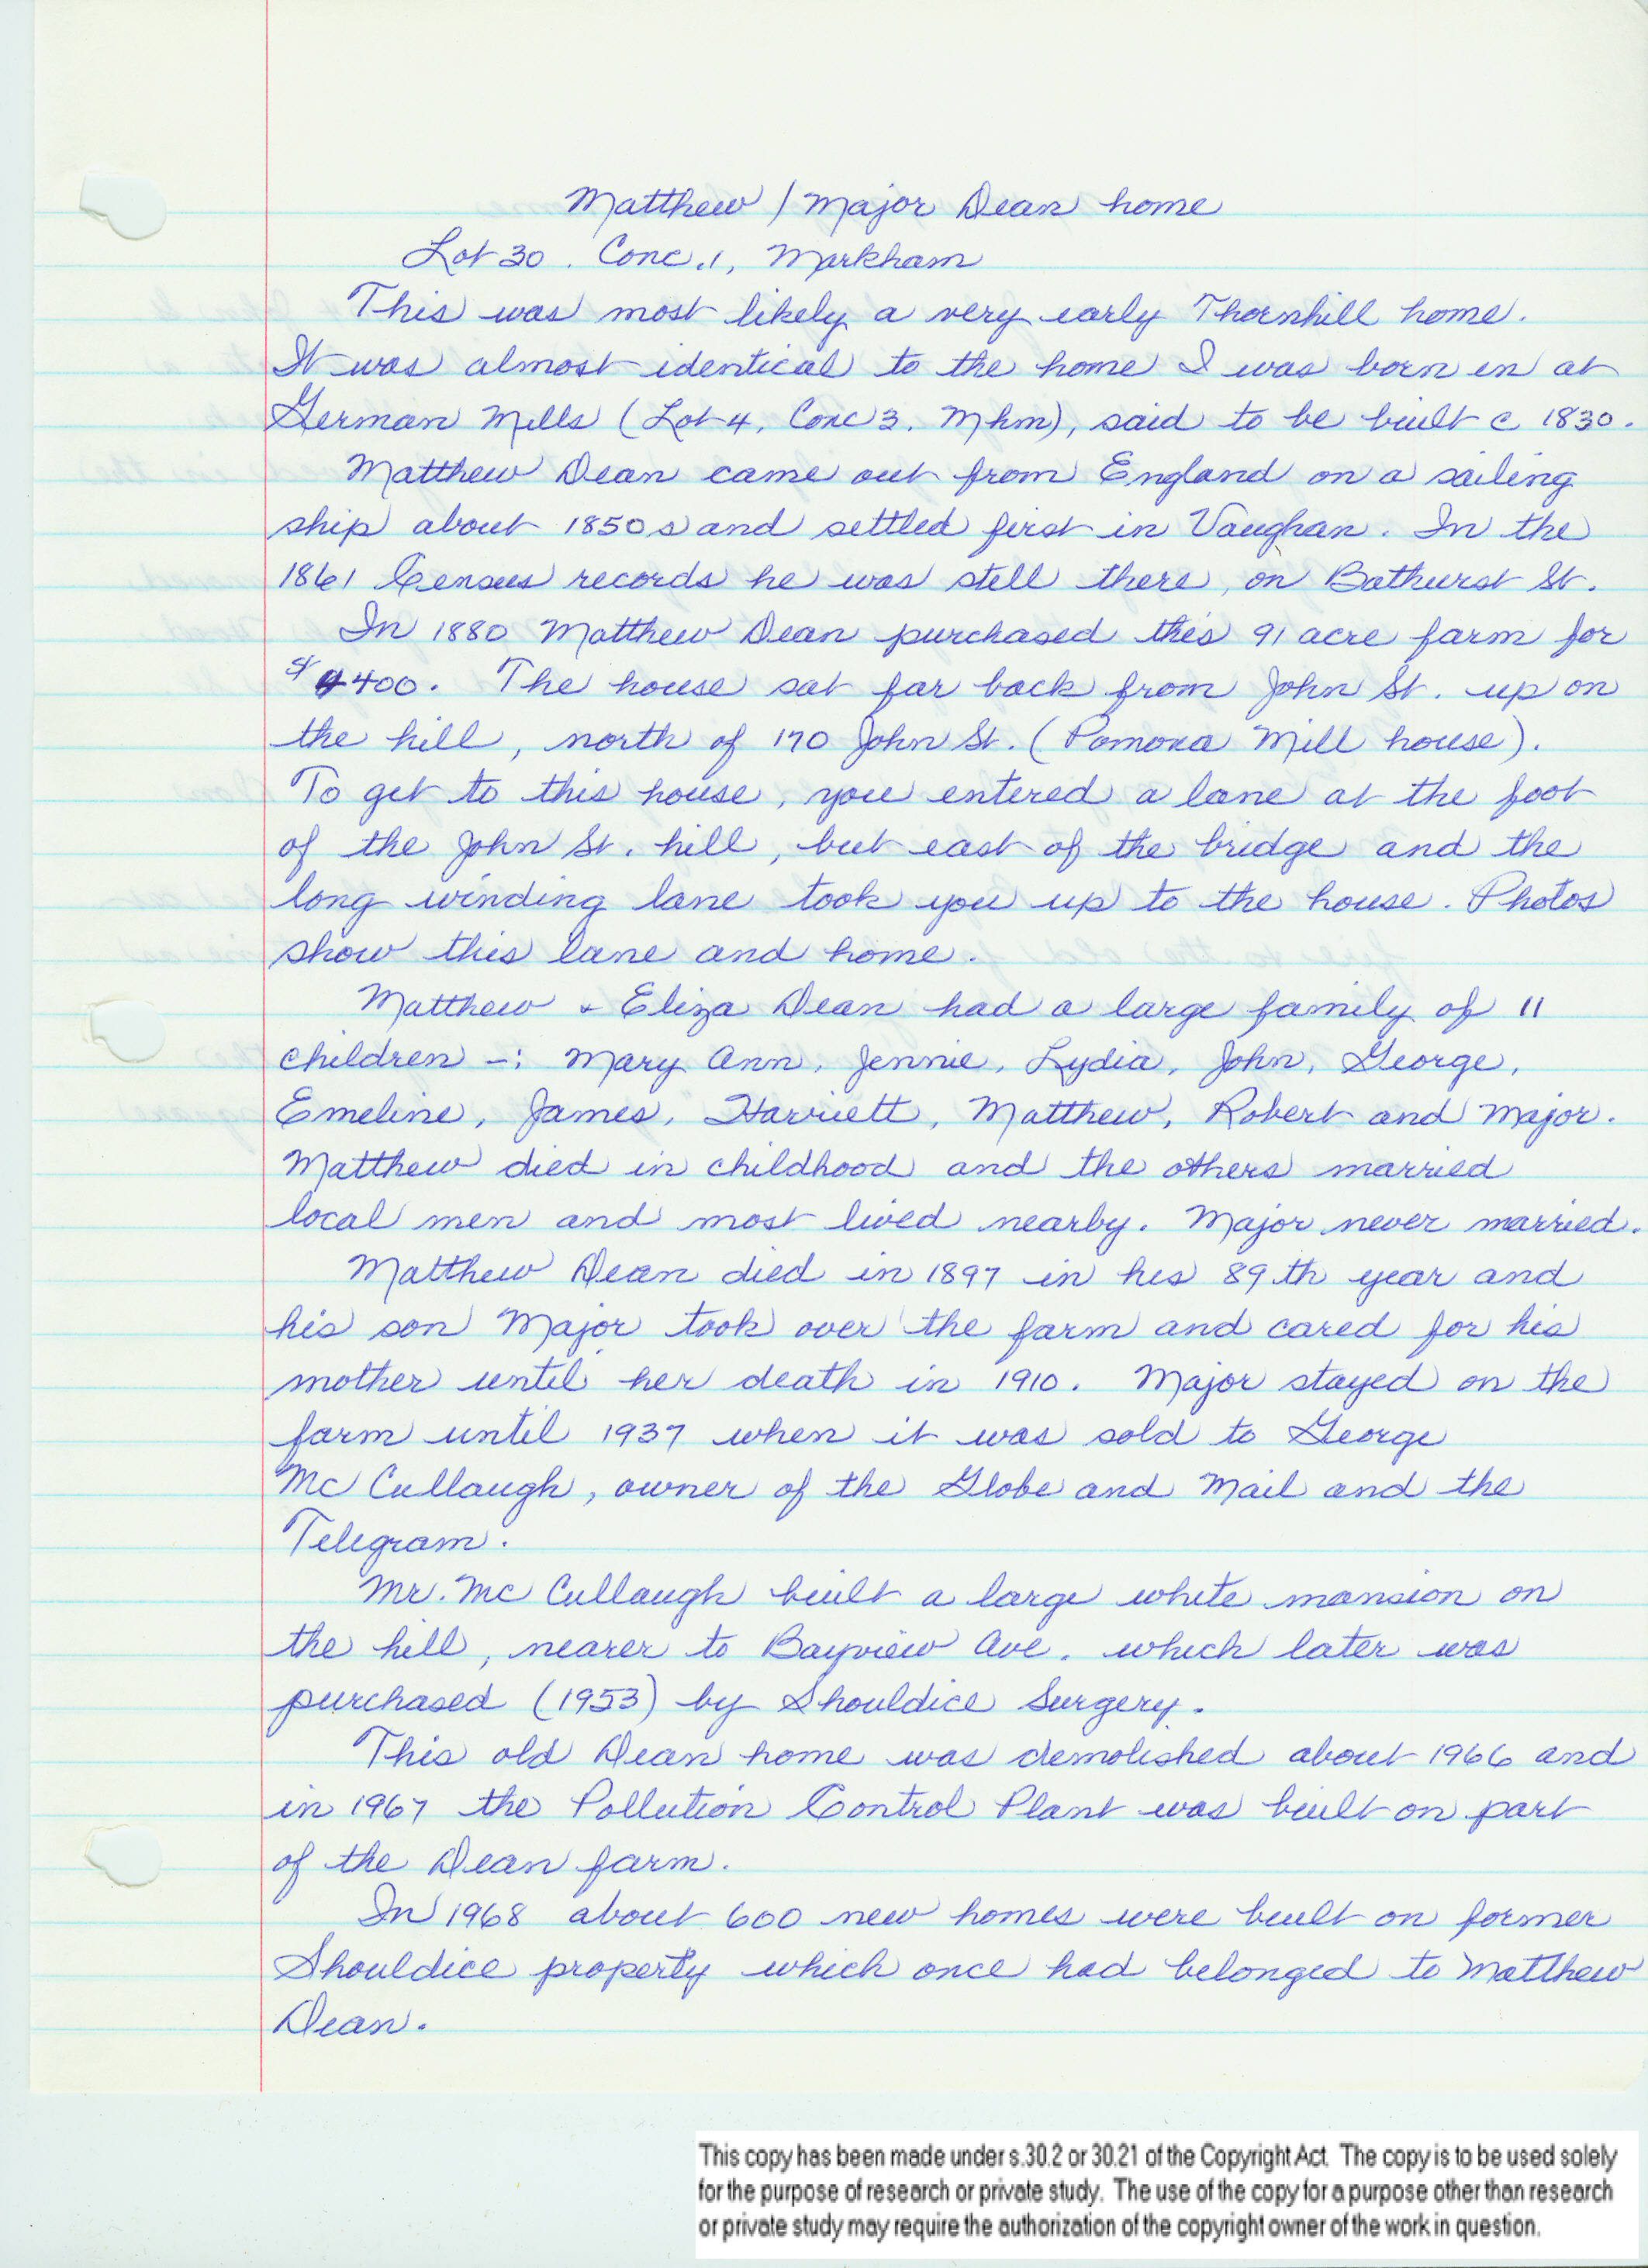 Matthew / Major Dean home
Lot 30. Conc. 1, Markham
This was most likely a very early Thornhill home.
It was almost identical to the home I was born in at
German Mills (Lot 4, Conc 3. Mkm), said to be built c 1830.
Matthew Dean came out from England on a sailing
ship about 1850s and settled first in Vaughan. In the
1861 Census records he was still there, on Bathurst St.
In 1880 Matthew Dean purchased this 91 acre farm for
$4400. The house sat far back from John St. up on
the hill, north of 170 John St. (Pomona Mill house).
To get to this house, you entered a lane at the foot
of the John St. hill, but east of the bridge and the
long winding lane took you up to the house. Photos
show this lane and home.
Matthew + Eliza Dean had a large family of 11
children -: Mary Ann, Jennie, Lydia, John, George,
Emeline, James, Harriett, Matthew, Robert and Major.
Matthew died in childhood and the others married
local men and most lived nearby. Major never married.
Matthew Dean died in 1897 in his 89th year and
his son Major took over the farm and cared for his
mother until her death in 1910. Major stayed on the
farm until 1937 when it was sold to George
Mc Cullaugh, owner of the Globe and Mail and the
Telegram.
Mr. Mc Cullaugh built a large white mansion on
the hill, nearer to Bayview Ave. which later was
purchased (1953) by Shouldice Surgery.
This old Dean home was demolished about 1966 and
in 1967 the Pollution Control Plant was built on part
of the Dean farm.
In 1968 about 600 new homes were built on former
Shouldice property which once had belonged to Matthew
Dean.
This copy has been made under s.30.2 or 30.21 of the Copyright Act. The copy is to be used solely
for the purpose of research or private study. The use of the copy for a purpose other than research
or private study may require the authorization of the copyright owner of the work in question.